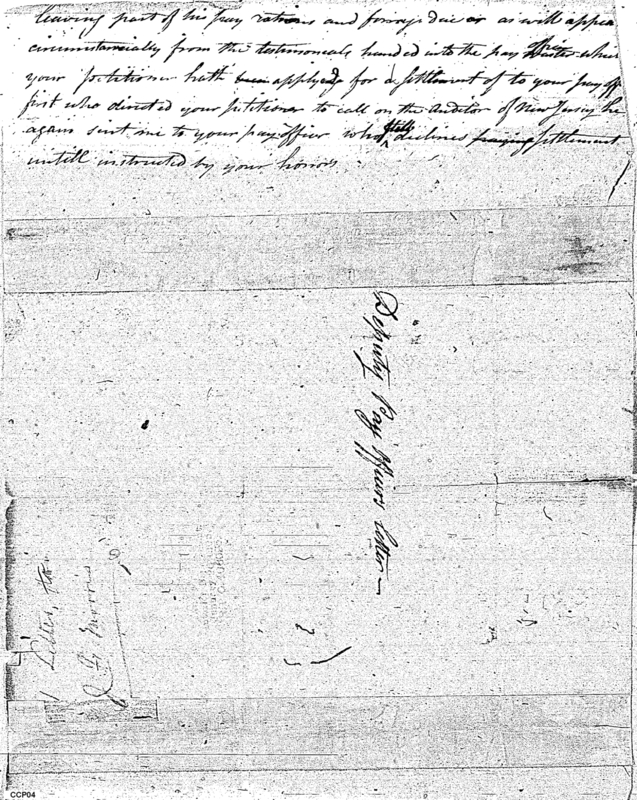 leaving part of his pay rations and forrage due as will appea
circumstancially from the testimoneals handed into the pay office when
your petitioner hath been applyed for a settlement of to your pay off
first who directed your petitioner to call on the Auditor of New Jersey he
again sent me to your pay officer who still declines paying settlement
untill instructed by your honors
Deputy Pay Officers Letter
Letter,
Morris
CCP04